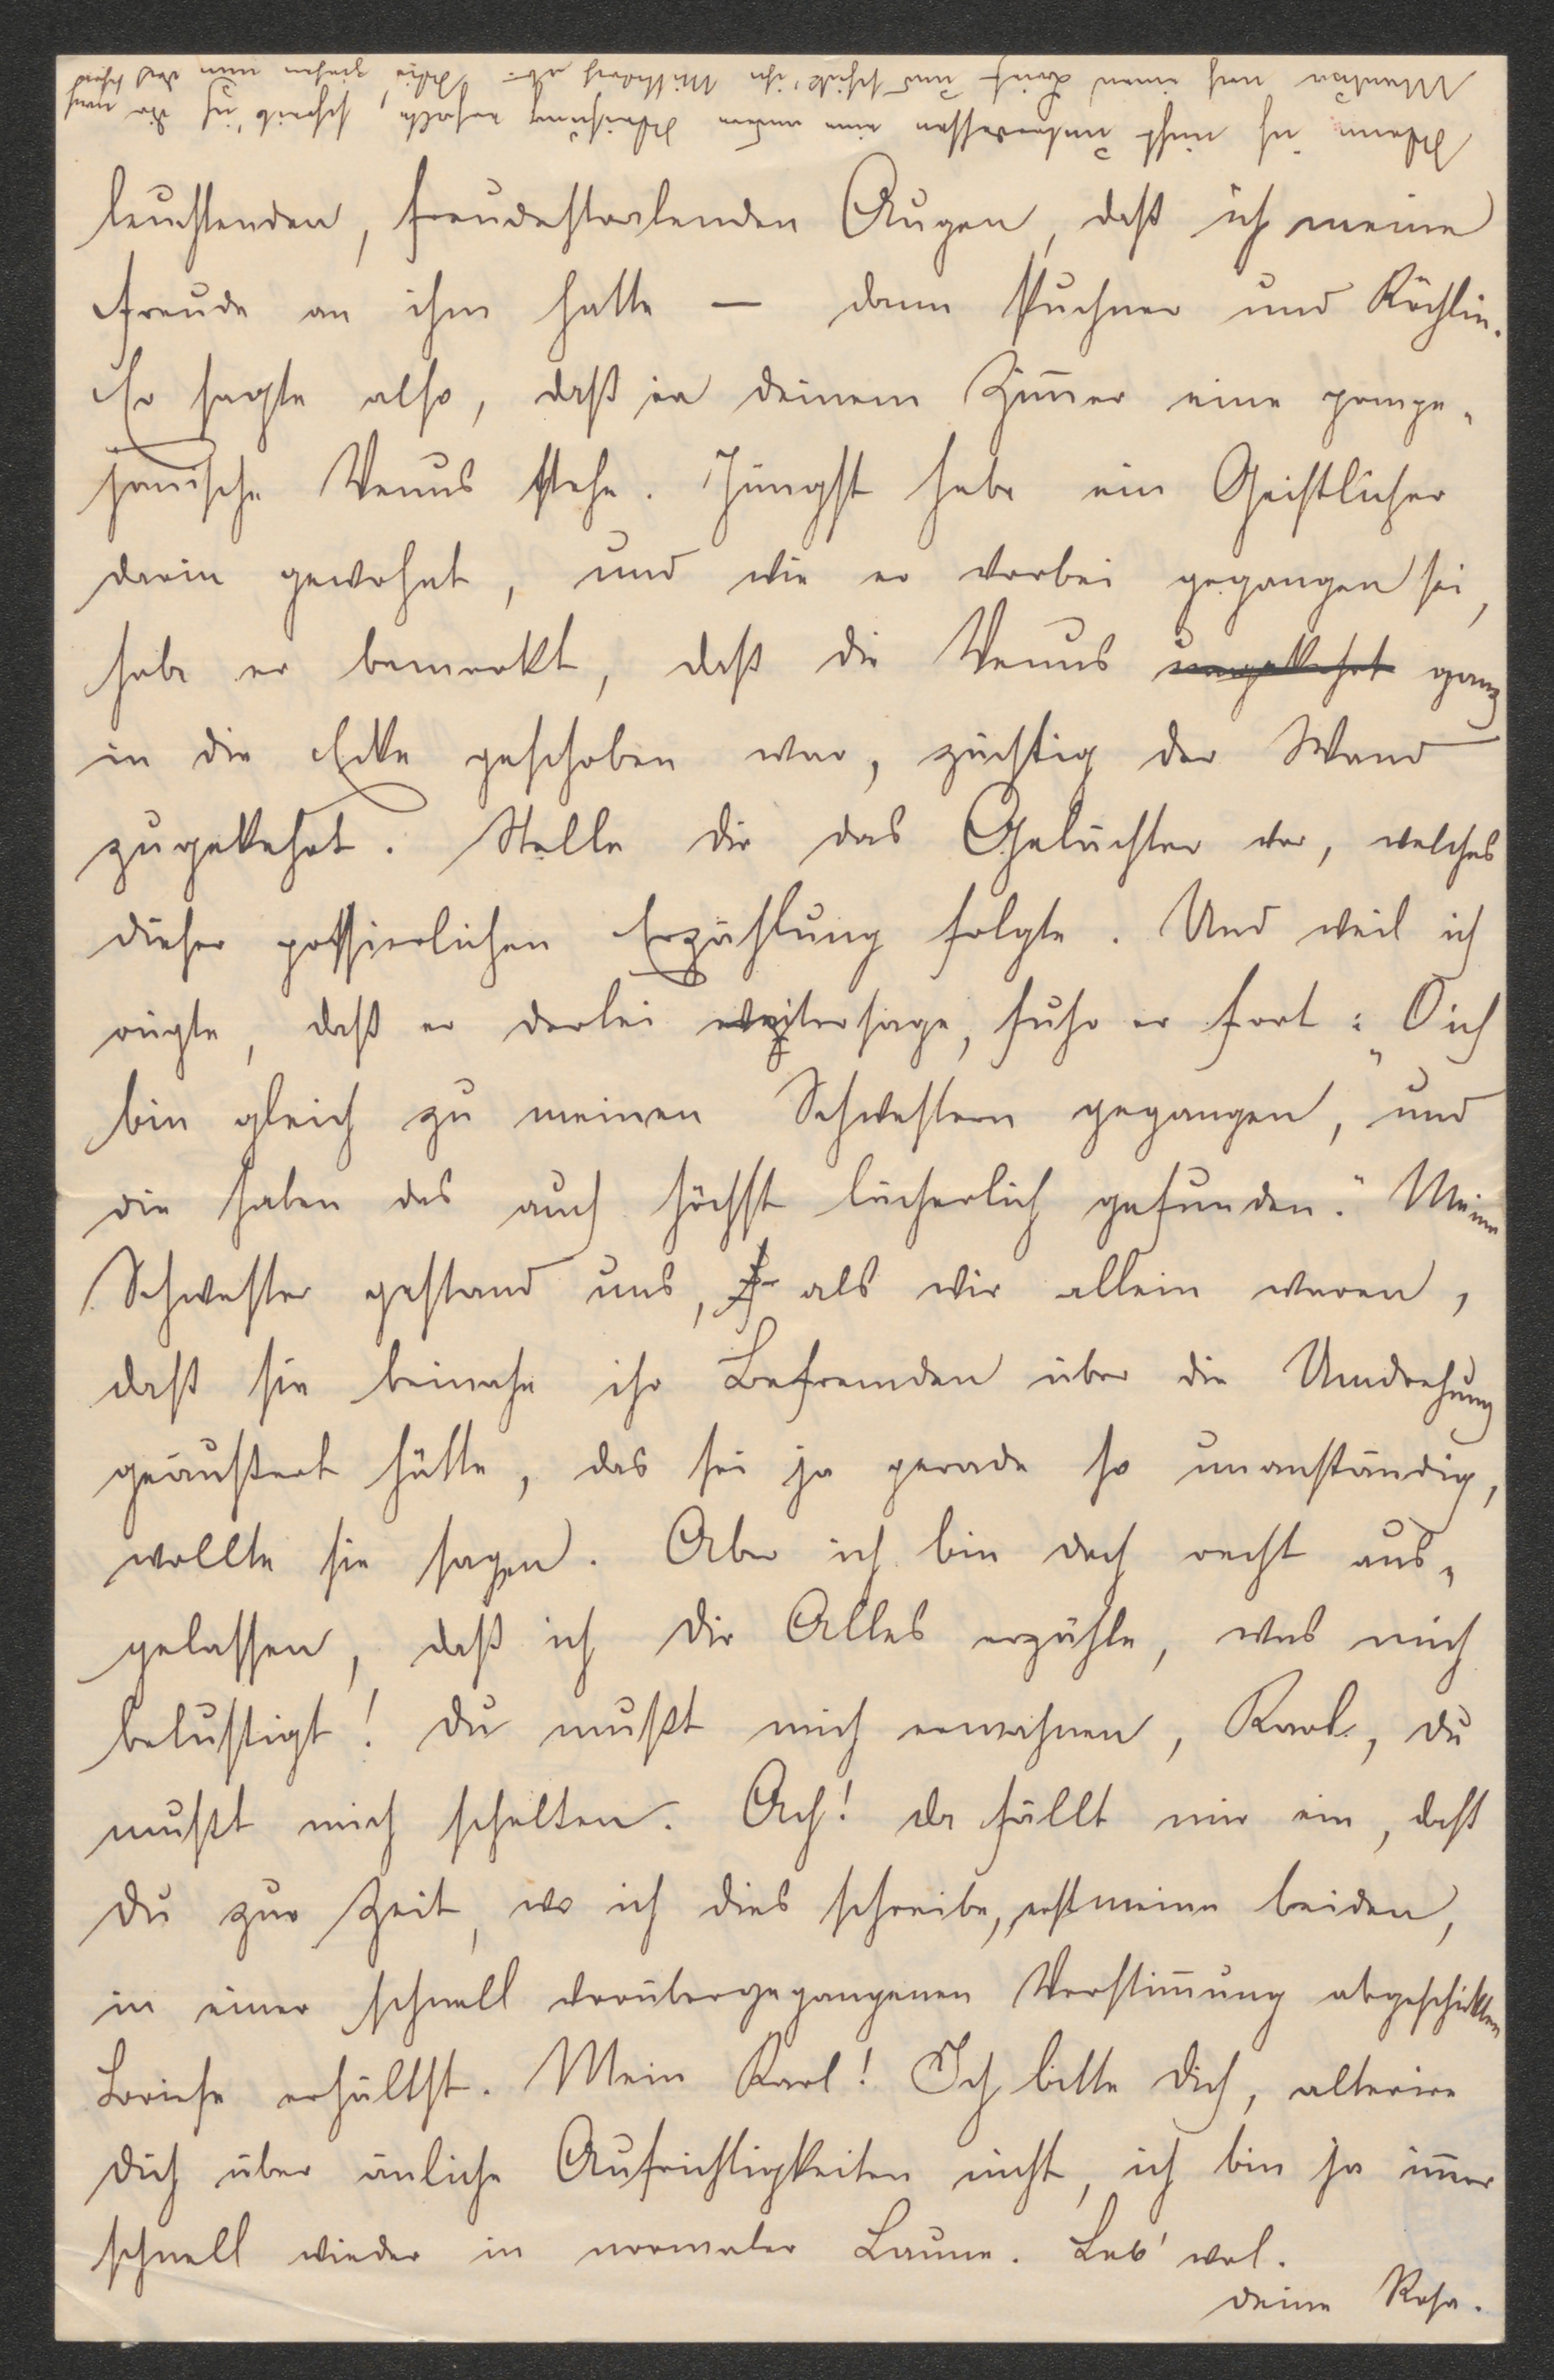 leuchtenden, freudestralenden Augen, daß ich meine
Freude an ihm hatte — dann Puchner und Röchlin.
Er sagte also, daß in deinem Zim̄er eine pompe„
janische Venus stehe. Jüngst habe ein Geistlicher
darin gewohnt, und wie er vorbei gegangen sei,
habe er bemerkt, daß die Venus umgekehrt ganz
in die Ecke geschoben war, züchtig der Wand
zugekehrt. Stelle dir das Gelächter vor, welches
dieser possierlichen Erzählung folgte. Und weil ich
rügte, daß er derlei weitersage, fuhr er fort: „O ich
bin gleich zu meinen Schwestern gegangen, und
die haben das auch höchst lächerlich gefunden." Meine
Schwester gestand uns, als wir allein waren,
daß sie beinahe ihr Befremden über die Umdrehung
geäußert hätte, das sei ja gerade so unanständig,
wollte sie sagen. Aber ich bin doch recht aus„
gelassen, daß ich dir Alles erzähle, was mich
belustigt! Du mußt mich ermahnen, Karl, du
mußt mich schelten. Ach! da fällt mir ein, daß
du zur Zeit, wo ich dies schreibe, erst meine beiden,
in einer schnell vorübergegangenen Verstim̄ung abgeschickten
Briefe erhältst. Mein Karl! Ich bitte dich, alterire
dich über änliche Aufrichtigkeiten nicht, ich bin ja im̄er
schnell wieder in normaler Laune. Leb' wol.
deine Rosa.
Wenn ich nicht unterdessen eine andere Weisung erhalte, schreib' ich dir nach
Mantua noch einen Brief und schick' ihn Mittwoch ab.